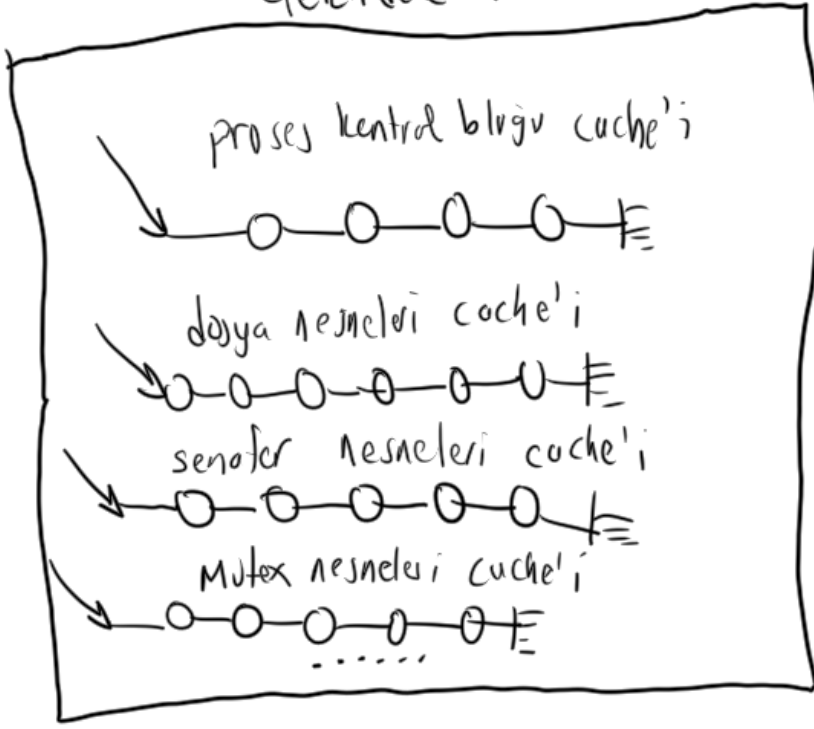 proses kontrol bloğu cache'i
dosya nesneleri cache'i
semafor nesneleri cache'i
Mutex nesneleri cache'i
......